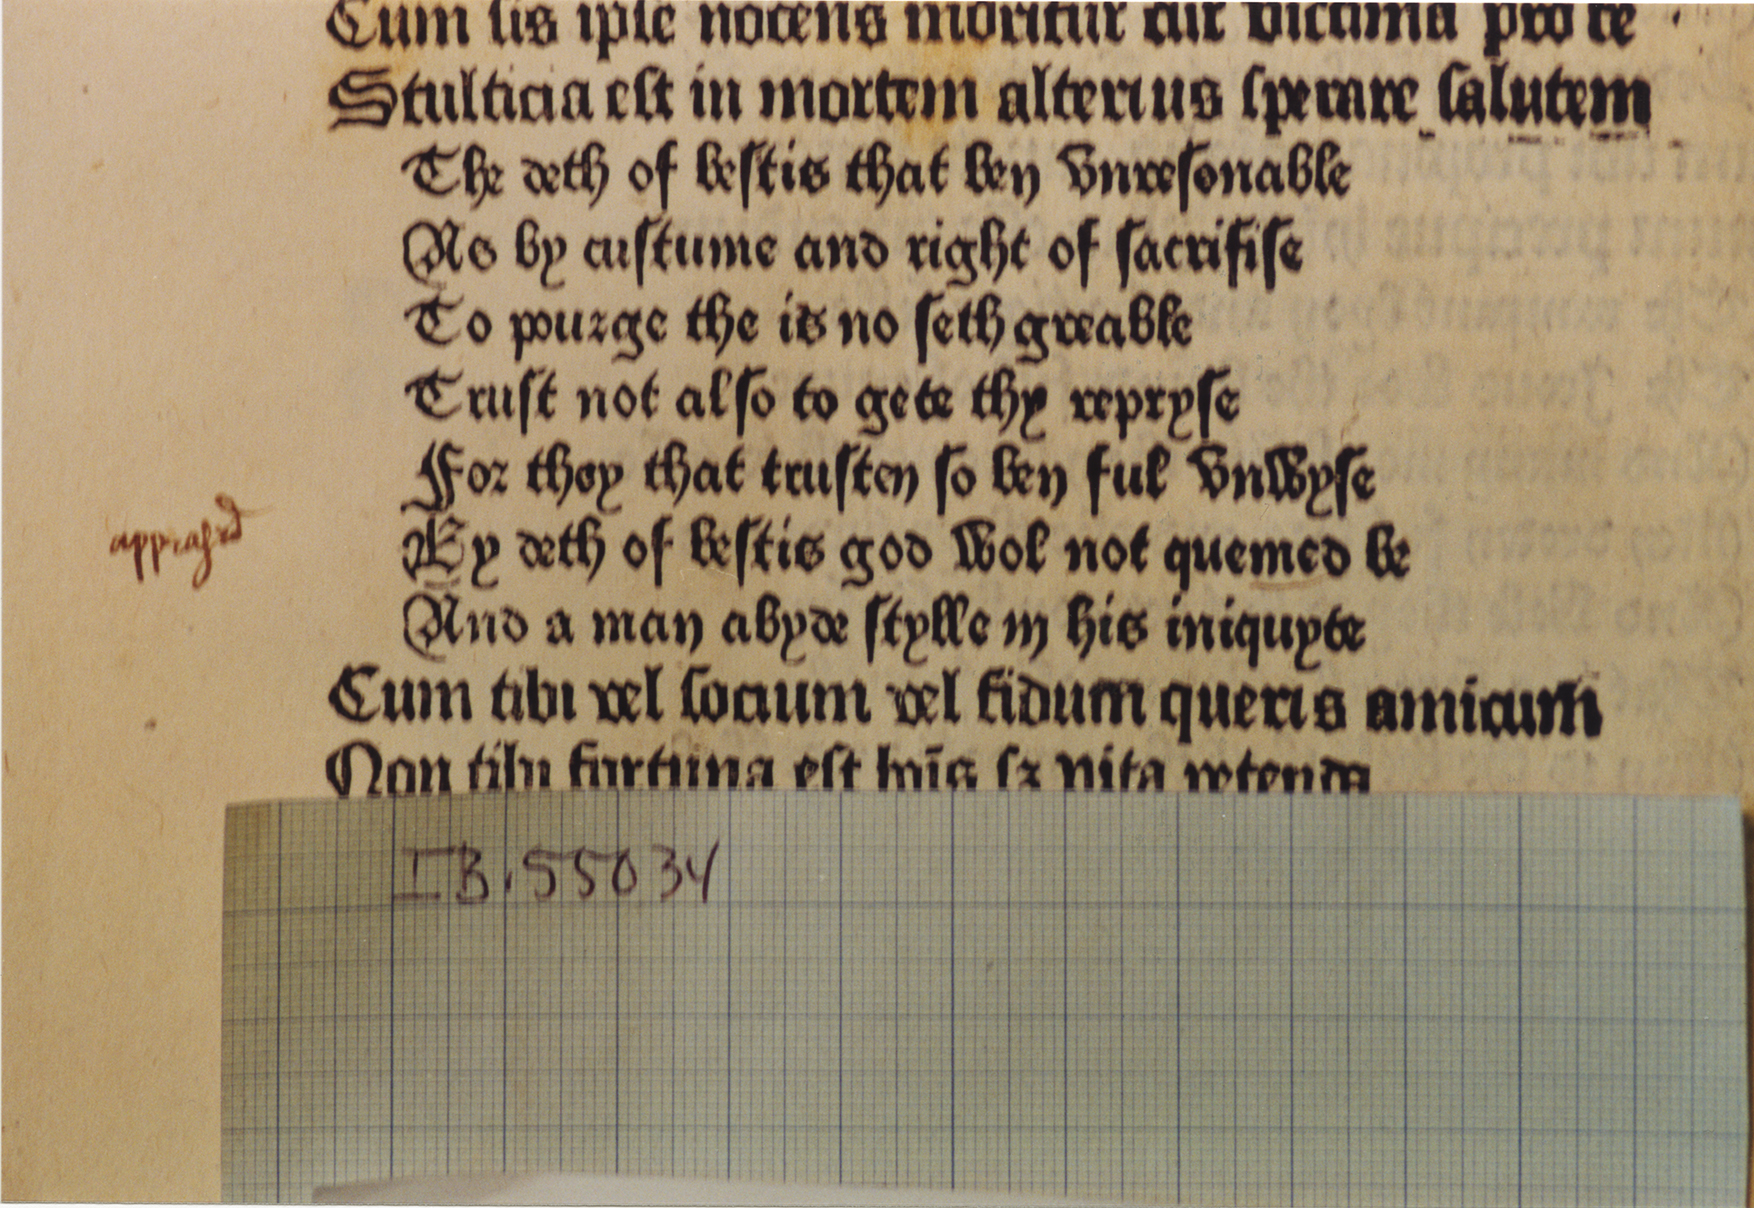 Cum sis ipse nocens moritur cur victima pro te
Stulticia est in mortem alterius sperare salutem
The deth of bestis that ben vnresonable
As by custume and right of sacrifise
To pourge the is no seth greable
Trust not also to gete thy repryse
For they that trusten so ben ful vnwyse
appeased
By deth of bestis god wol not quemed be
And a man abyde stylle in his iniquyte
Cum tibi vel socium vel fidum queris amicum
Non tibi fortuna est hoīs sz vita petenda
IB.55034